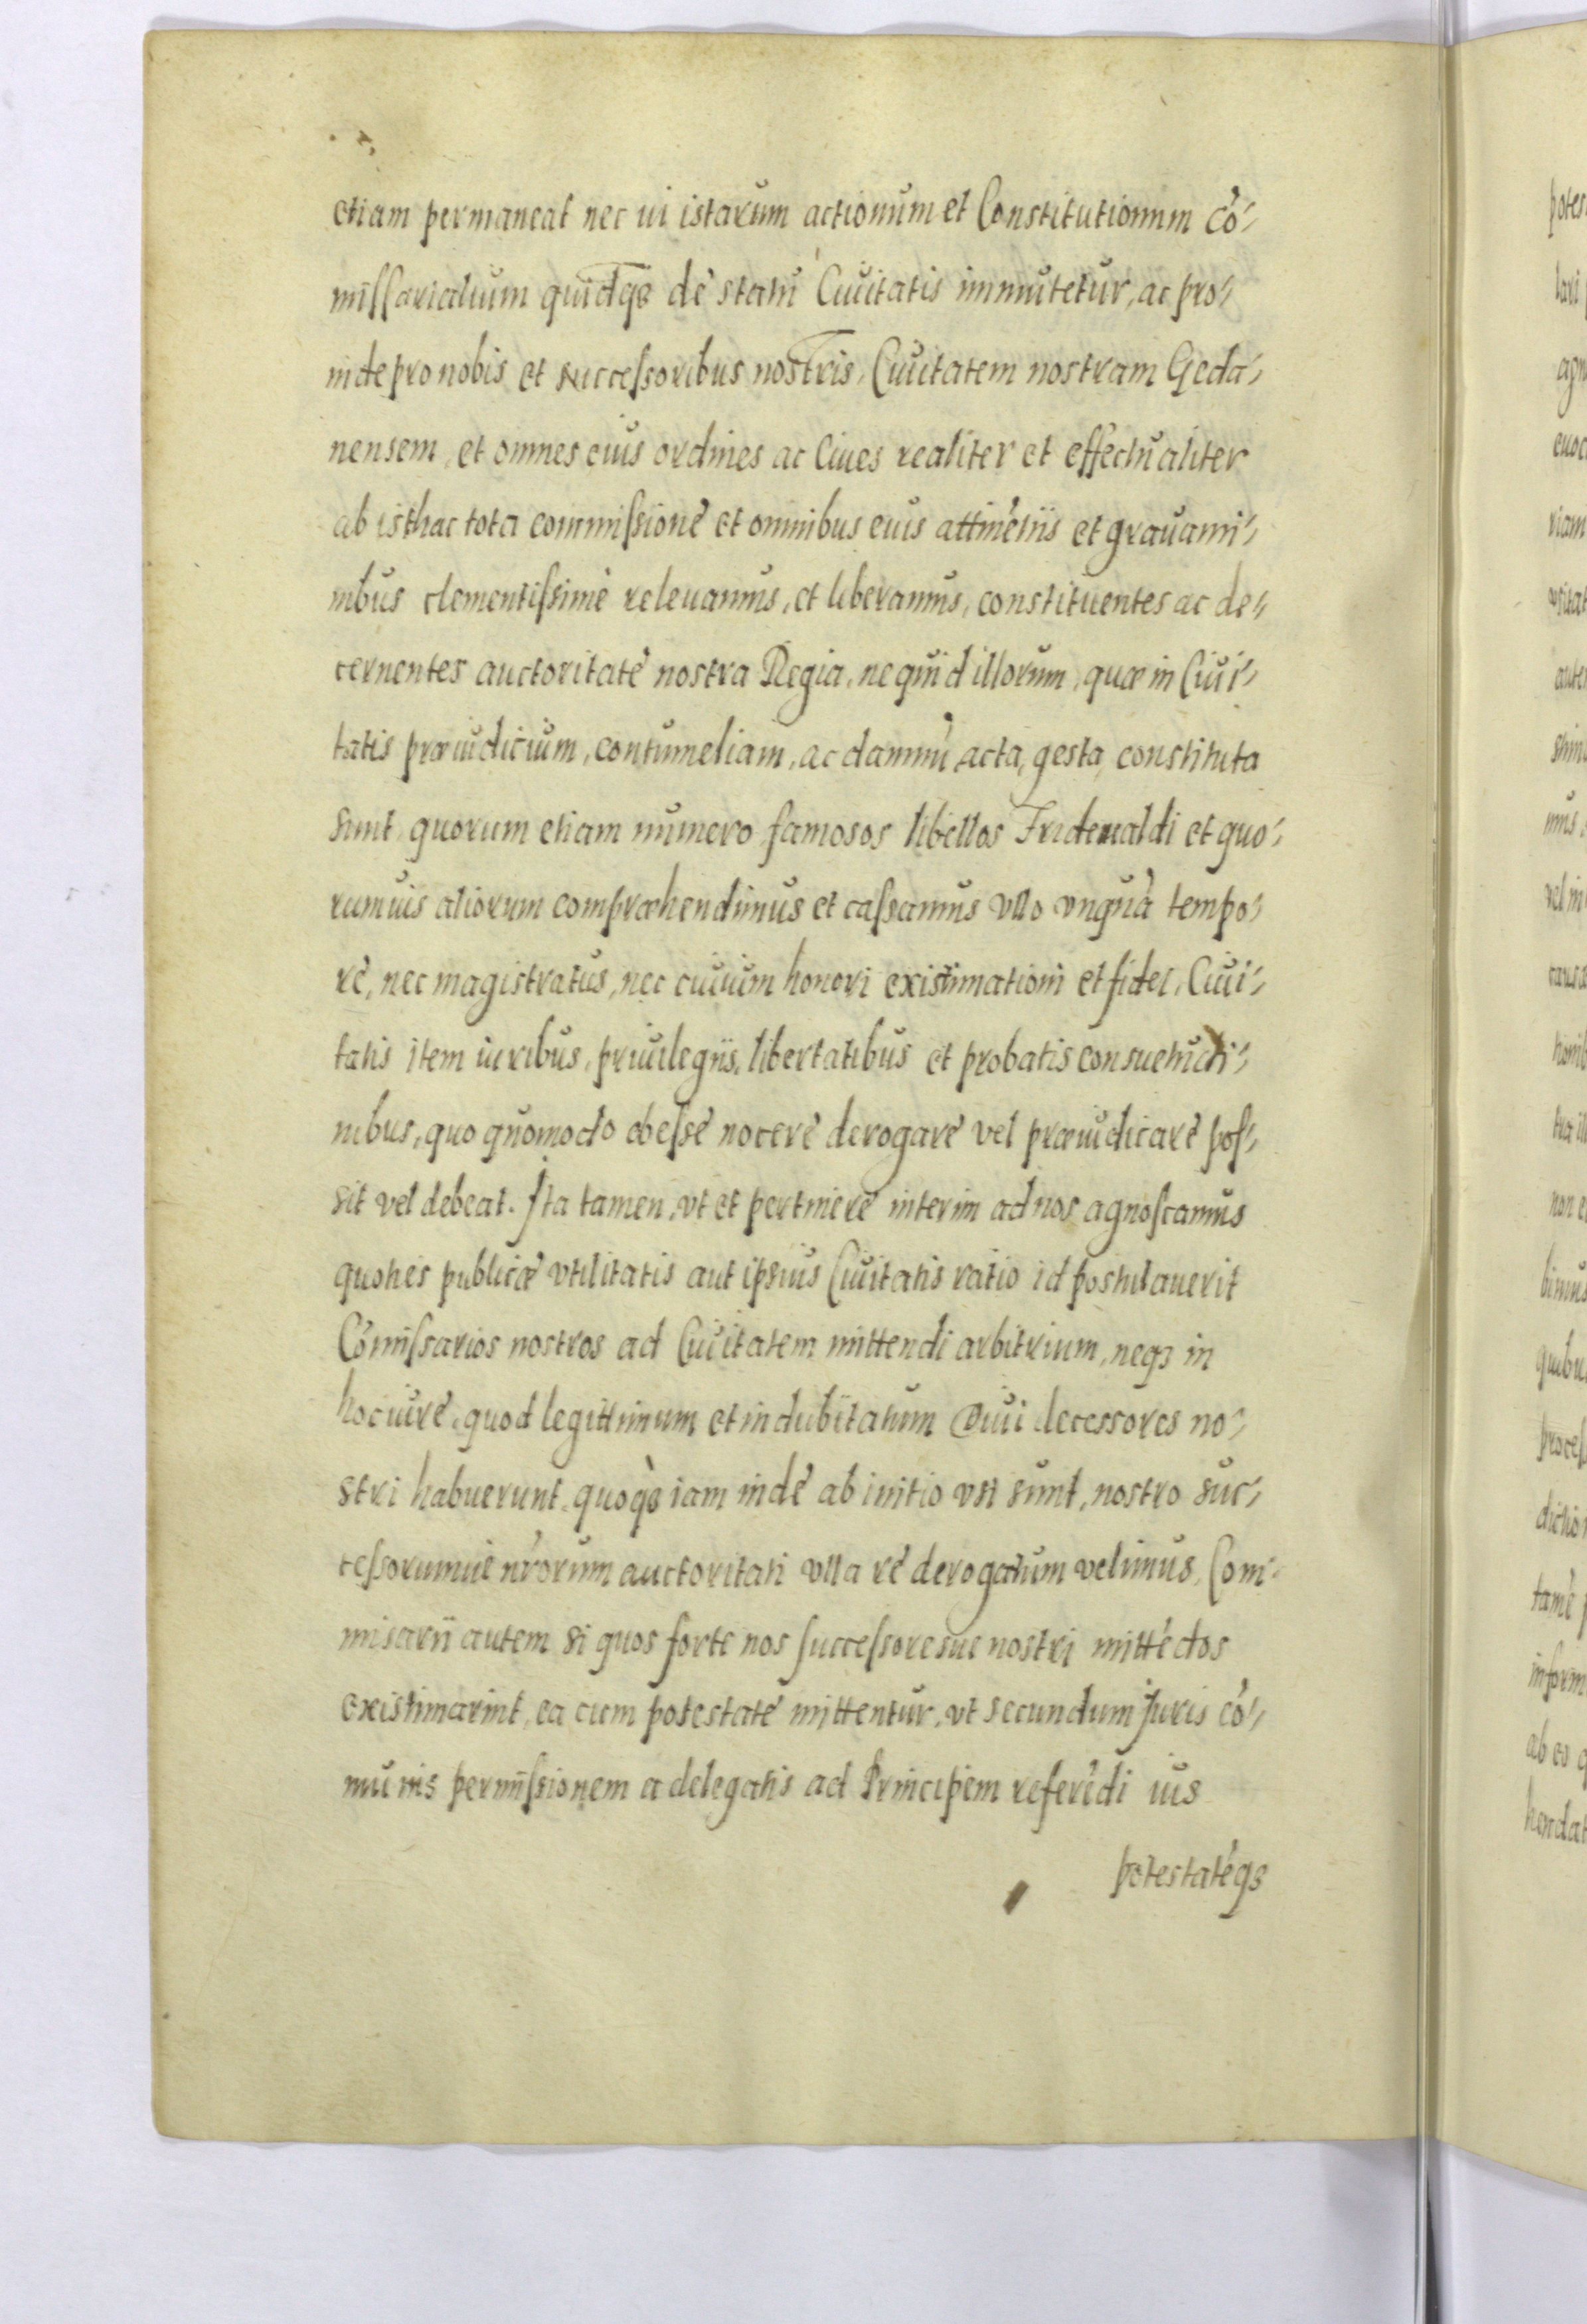 etiam permaneat nec ui istarum actionum et Constitutionum cõ-
missarialium quidq̃ȝ de statu Ciuitatis immutetur, ac pro-
inde pro nobis et successoribus nostris, Ciuitatem nostram Geda-
nensem, et omnes eius ordines ac Ciues realiter et effectualiter
ab isthac tota commissione et omnibus euis attinẽtiis et grauami-
nibus clementissimè releuamus, et liberamus, constituentes ac de-
cernentes auctoritate nostra Regia, ne quid illorum, quæ in Ciui-
tatis præiudicium, contumeliam, ac damnũ acta, gesta, constituta
sunt, quorum etiam numero famosos libellos Fridewaldi et quo-
rumuis aliorum compræhendimus et cassamus vllo vnquã tempo-
re, nec magistratus, nec ciuium honori existimationi et fidei, Ciui-
tatis item iuribus, priuilegiis, libertatibus et probatis consuetudi-
nibus, quo quomodo obesse nocere derogare vel præiudicare pos-
sit vel debeat. Ita tamen, vt et pertinere interim ad nos agnoscamus
quoties publicæ vtilitatis aut ipsius Ciuitatis ratio id postulauerit
Cõmissarios nostros ad Ciuitatem mittendi arbitrium, neqȝ in
hoc iure, quod legittimum et indubitatum Diui decessores no-
stri habuerunt, quoqȝ iam inde ab initio vsi sunt, nostro suc-
cessorumue nr̃orum auctoritati vlla re derogatum velimus. Com-
misarii autem si quos forte nos successoresue nostri mittẽdos
existimarint, ea cum potestate mittentur, vt secundum Juris cõ-
munis permissionem a delegatis ad Principem referẽdi ius
potestatẽqȝ
potes